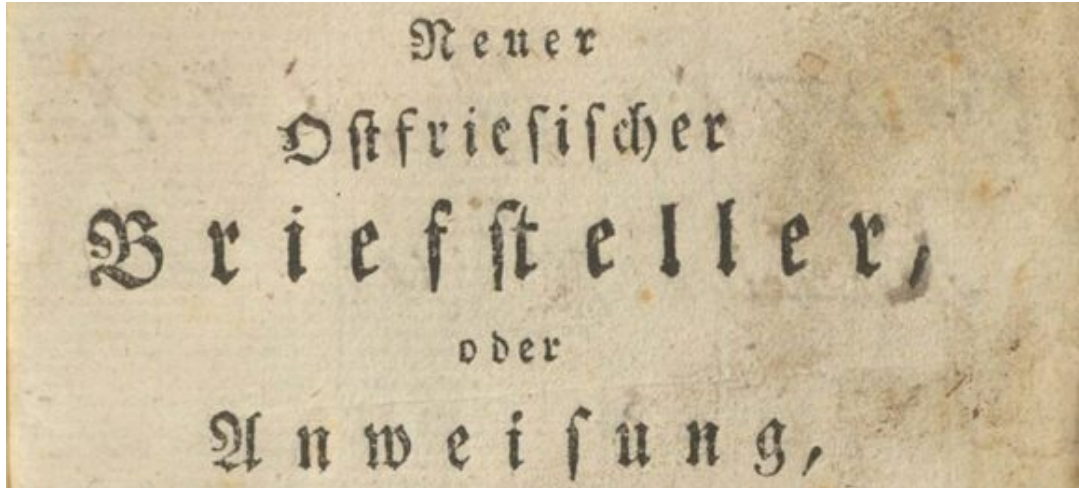 Neuer
Oſtfrieſiſcher
Briefſteller,
oder
Anweiſung,